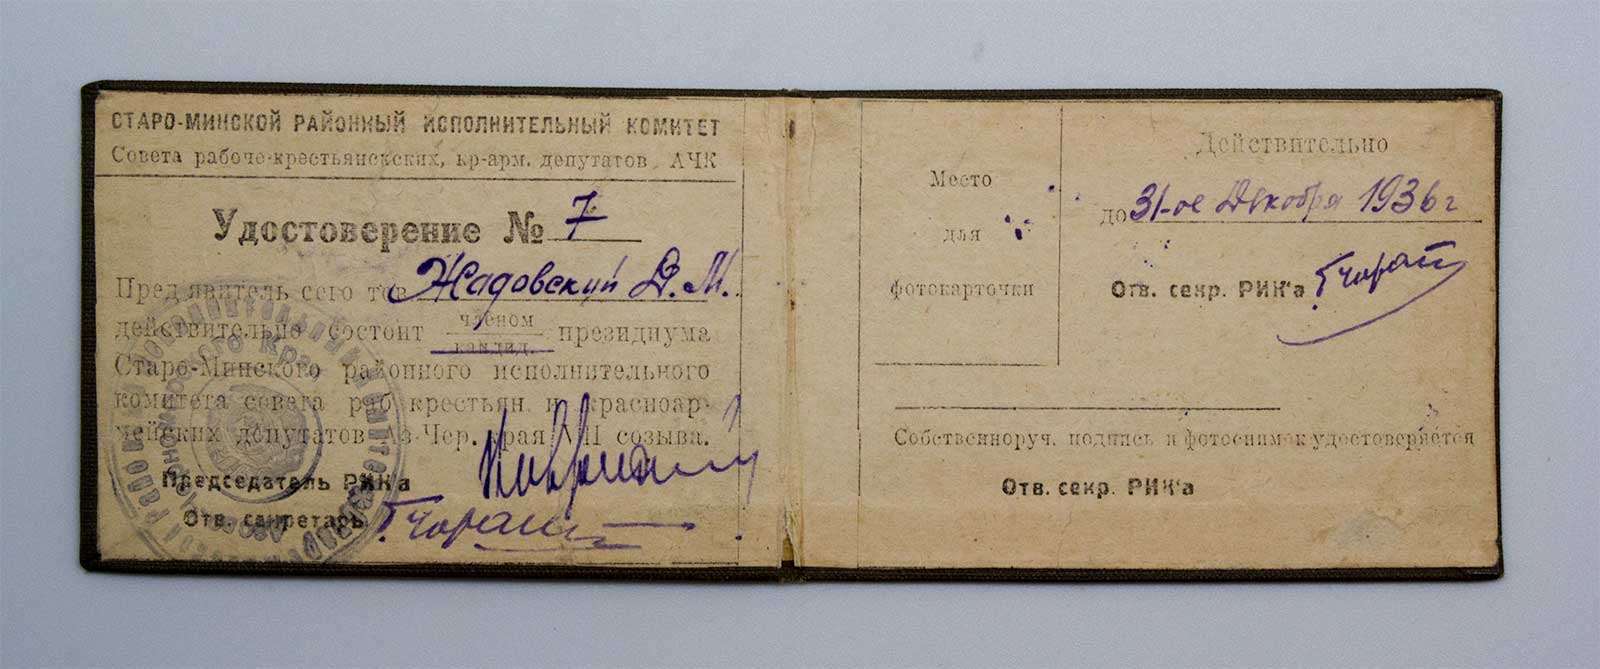 СТАРО-МИНСКОЙ РАЙОННЫЙ ИСПОЛНИТЕЛЬНЫЙ КОМИТЕТ
Совета рабоче-крестьянскских, кр-арм. депутатов АЧК
Удостоверение № 7
Пред'явитель сего тов. Жадовский Д. М.
действительно состоит членом президиума
кандид.
Старо-Минского районного исполнительного
комитета совета раб. крестьян. и красноар-
мейских депутатов Аз-Чер. края созыва.
Председатель РИК'а
Отв. секретарь
Место
для
фотокарточки
Действительно
до 31-ое Декабря 1936 г
Отв. секр. РИК'а
Собственноруч. подпись и фотоснимок удостоверяется
Отв. секр. РИК'а